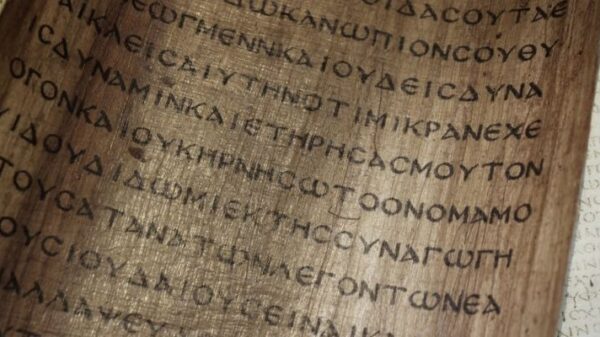 ΟΙΔΑCΟΥΤΑΕ
ΔΩΚΑΝΩΠΙΟΝCΟΥΘΥ
ΕΩΓΜΕΝΝΚΑΙΟΥΔΕΙCΔΥΝΑ
ΑΙΚΛΕΙCΑΙΥΤΗΝΟΤΙΜΙΚΡΑΝΕΧΕ
ΙCΔΥΝΑΜΙΝΚΑΙΕΤΗΡΗCΑCΜΟΥΤΟΝ
ΟΓΟΝΚΑΙΟΥΚΗΡΝΗCΩΤΟΟΝΟΜΑΜΟ
ΥΙΔΟΥΔΙΔΩΜΙΕΚΤΗCCΥΝΑΓΩΓΗ
ΤΟΥCΑΤΑΝΑΤΩΝΛΕΓΟΝΤΩΝΕΑ
ΟΥCΙΟΥΔΑΙΟΥCΕΙΝΑΙΚ
ΑΛΛΑΨΕΥ